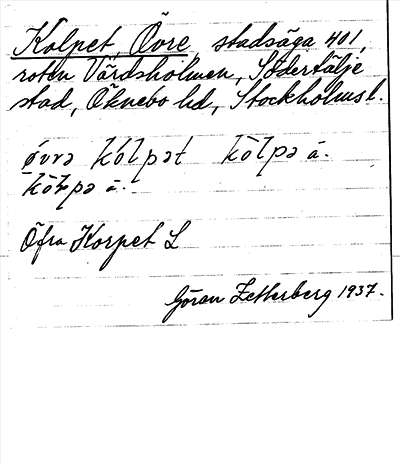 Kolpet, Övre, stadsäga 401,
roten Vårdsholmen, Södertälje
stad, Öknebo hd, Stockholms l.
óvrə kólpət kòlpə á.
kòlpə á.
Öfra Korpet L
Göran Zetterberg 1937.